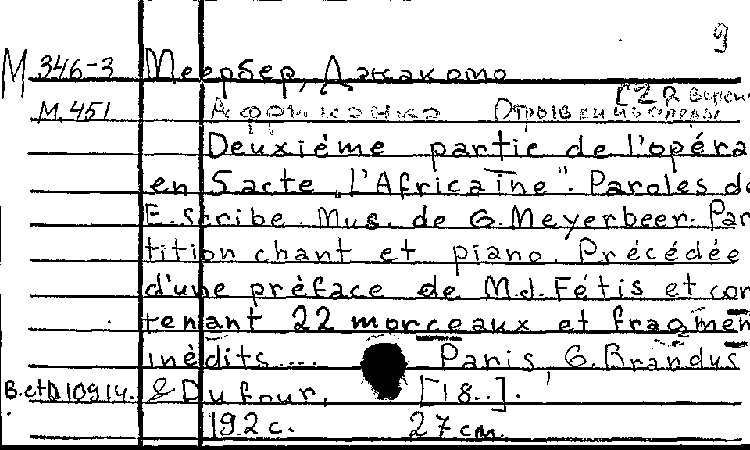 9
М 346-3 Меербер, Джакомо
М.451 Африканка Отрывки из оперы
Deuxième partie de l'opéra
en 5 acte „L'Africaine". Paroles de
E. Scribe. Mus. de G. Meyerbeer. Par
tition chant et piano. Précédée
d'une préface de M.J. Fétis et con
tenant 22 morceaux et fragmen
inédits .... Paris, G. Brandus
B. et D. 10914. & Dufour, [18..].
192 с. 27 см.